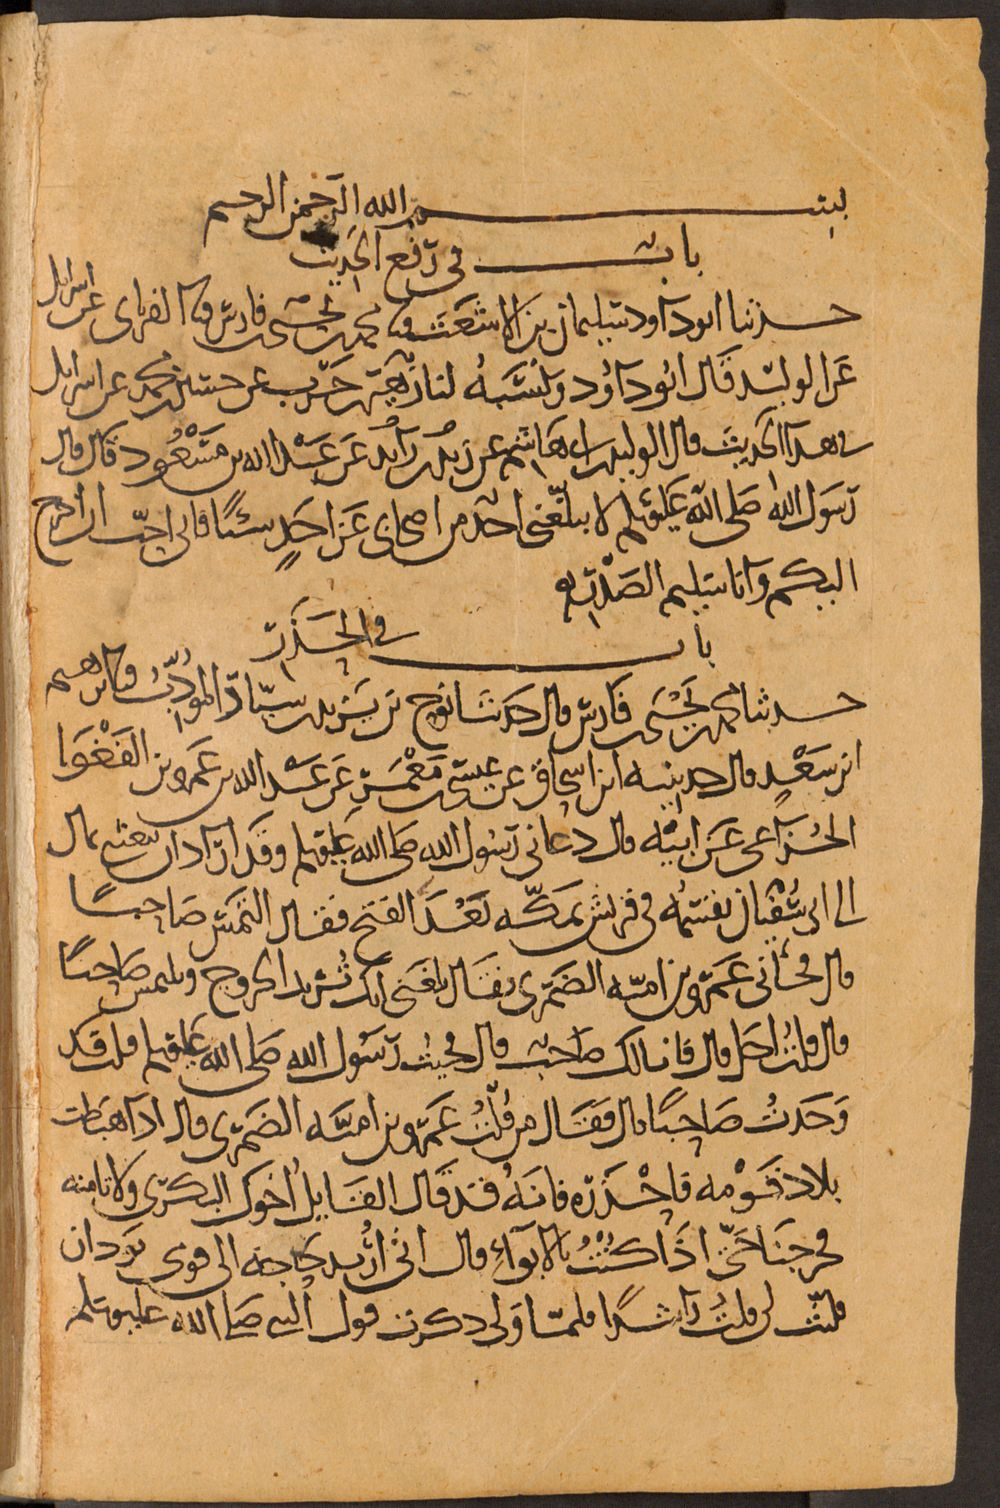 بسم الله الرحمن الرحيم
باب في رفع الحديث
حدثنا ابو داود سليمان بن الاشعث نا محمد بن يحيى بن فارس نا الفريابي عن اسرايل
عن الوليد قال ابو داود ونسبه لنا زهير بن حرب عن حسين بن محمد عن اسرايل
في هذا الحديث قال الوليد بن ابي هاشم عن زيد بن زايد عن عبد الله بن مسعود قال قال
رسول الله صلى الله عليه وسلم لا يبلغني احد من اصحابي عن احد شيئا فاني احب ان اخرج
اليكم وانا سليم الصدر
باب في الحذر
حدثنا محمد بن يحيى بن فارس قال حدثنا نوح بن يزيد بن سيار المودب نا ابرهيم
ابن سعد قال حدثنيه ابن اسحاق عن عيسى بن معمر عن عبد الله بن عمرو بن الفغوا
الخزاعي عن ابيه قال دعاني رسول الله صلى الله عليه وسلم وقد اراد ان يبعثني بمال
الى ابي سفيان يقسمه في قريش بمكه بعد الفتح فقال التمس صاحبا
قال فجاني عمرو بن اميه الضمري فقال بلغني انك تريد الخروج وتلتمس صاحبا
قال قلت اجل قال فانا لك صاحب قال فجيت رسول الله صلى الله عليه وسلم قلت قد
وجدت صاحبا قال فقال من قلت عمرو بن اميه الضمري قال اذا هبطت
بلاد قومه فاحذره فانه قد قال القايل اخوك البكري ولا تامنه
فخرجنا حتى اذا كنت بالابواء قال اني اريد حاجه الى قومي بودان
فتلبث لي قلت راشدا فلما ولى ذكرت قول النبي صلى الله عليه وسلم